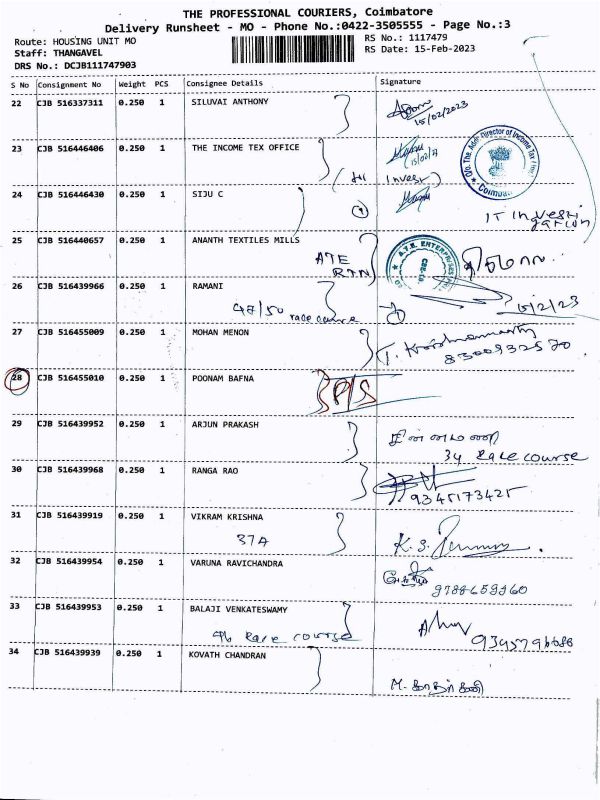 THE PROFESSIONAL COURIERS, Coimbatore
Delivery Runsheet - MO - Phone No.:0422-3505555 - Page No.:3
Route: HOUSING UNIT MO
RS No.: 1117479
Staff: THANGAVEL
RS Date: 15-Feb-2023
DRS No.: DCJB111747903
S No Consignment No Weight PCS Consignee Details Signature
22 CJB 516337311 0.250 1 SILUVAI ANTHONY
15/02/2023
23 CJB 516446406 0.250 1 THE INCOME TEX OFFICE
15/02/2
Invest)
24 CJB 516446430 0.250 1 SIJU C
IT Investi
gation
25 CJB 516440657 0.250 1 ANANTH TEXTILES MILLS
ATE
RTN
A.T.E. ENTERPRISES
CBE-18
26 CJB 516439966 0.250 1 RAMANI
48/50 race course
15/2/23
27 CJB 516455009 0.250 1 MOHAN MENON
T. Krishnamurthy
8300932570
28 CJB 516455010 0.250 1 POONAM BAFNA
P/S
29 CJB 516439952 0.250 1 ARJUN PRAKASH
சின்னமணி
34 Race course
30 CJB 516439968 0.250 1 RANGA RAO
9345173425
31 CJB 516439919 0.250 1 VIKRAM KRISHNA
37A
K.S.
32 CJB 516439954 0.250 1 VARUNA RAVICHANDRA
9788659960
33 CJB 516439953 0.250 1 BALAJI VENKATESWAMY
96 Race course
34 CJB 516439939 0.250 1 KOVATH CHANDRAN